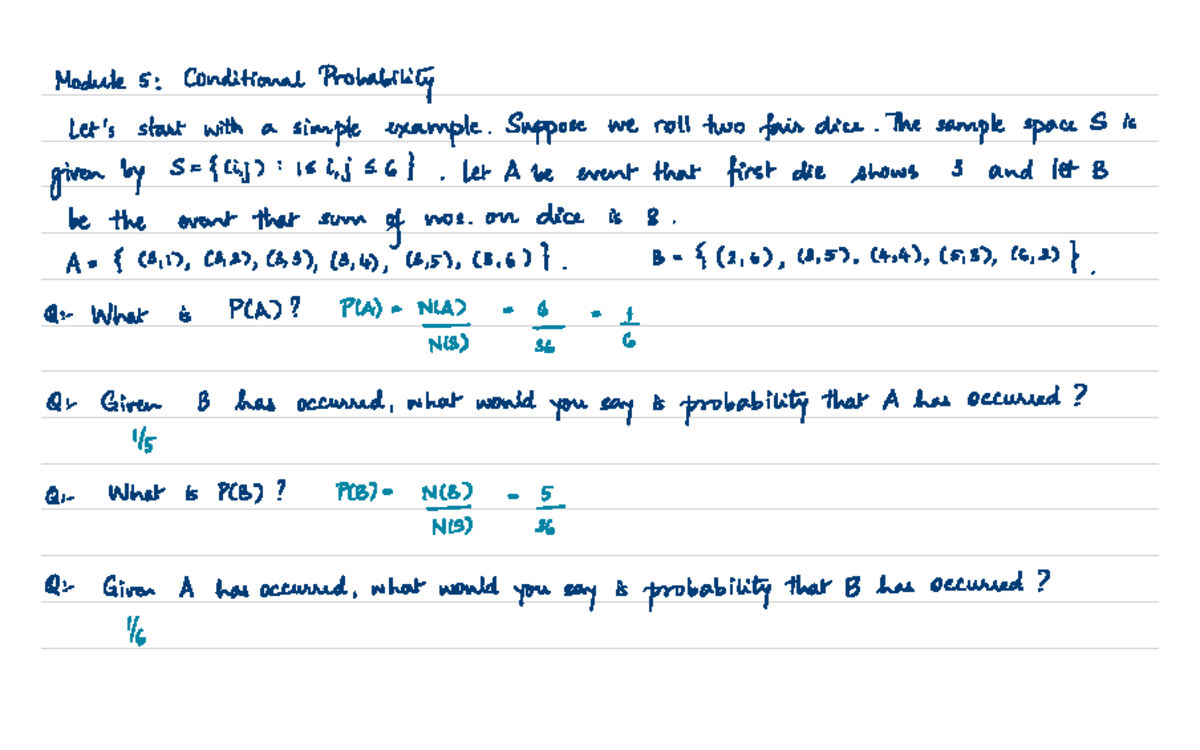 Module 5: Conditional Probability
Let's start with a simple example. Suppose we roll two fair dice. The sample space S is
given by S = {(i,j) : 1 ≤ i,j ≤ 6}. Let A be event that first die shows 3 and let B
be the event that sum of nos. on dice is 8.
A = { (3,1), (3,2), (3,3), (3,4), (3,5), (3,6) }. B = { (2,6), (3,5), (4,4), (5,3), (6,2) }.
Q:- What is P(A)? P(A) = N(A)/N(S) = 6/36 = 1/6
Q:- Given B has occurred, what would you say is probability that A has occurred?
1/5
Q:- What is P(B)? P(B) = N(B)/N(S) = 5/36
Q:- Given A has occurred, what would you say is probability that B has occurred?
1/6